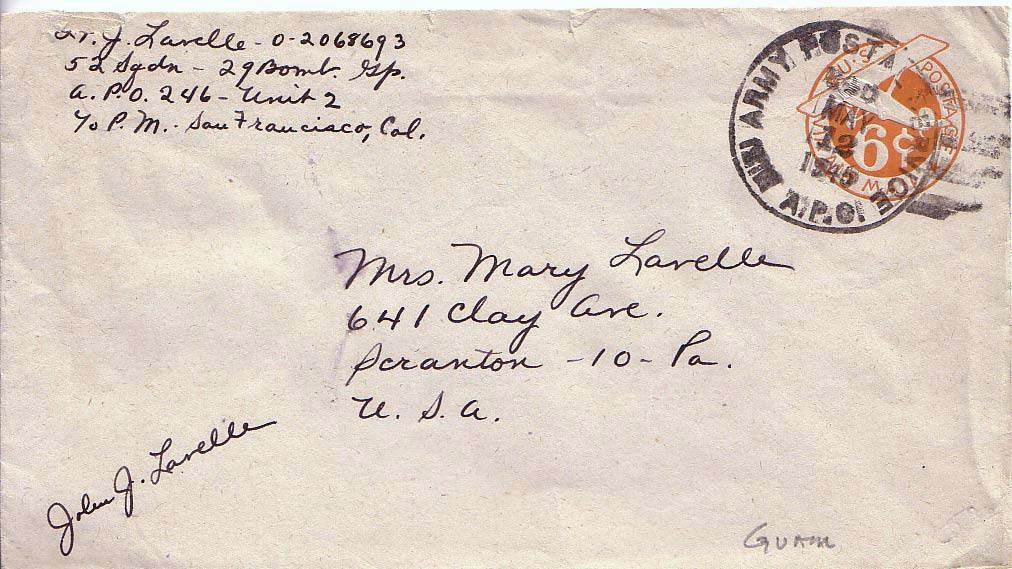 Lt. J. Lavelle - O-2068693
52 Sqdn - 29 Bomb. Gp.
A.P.O. 246 - Unit 2
c/o P.M. - San Francisco, Cal.
ARMY POSTAL SERVICE
MAY
12
1945
A.P.O.
U.S. POSTAGE
6¢
Mrs. Mary Lavelle
641 Clay Ave.
Scranton - 10 - Pa.
U. S. A.
John J. Lavelle
GUAM